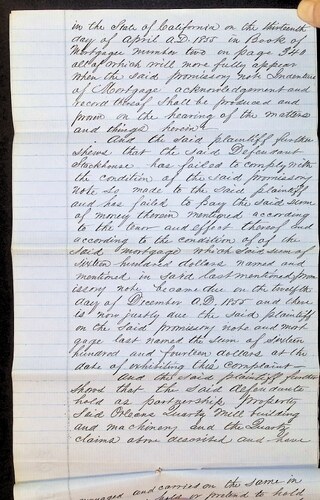 in the State of California on the thirteenth
day of April A.D. 1855 in Book of
Mortgages number two on page 340
all of which will more fully appear
when the said promissory note Indenture
of Mortgage acknowledgement and
record thereof shall be produced and
proven on the hearing of the matters
and things herein
And the said plaintiff further
shews that the said Defendant
Stockhouse has failed to comply with
the condition of the said promissory
note so made to the said plaintiff
and has failed to pay the said sum
of money therein mentioned according
to the tenor and effect thereof and
according to the condition of of the
said mortgage which said sum of
Sixteen hundred dollars named and
mentioned in said last mentioned prom
issory note became due on the twelfth
day of December A.D. 1855 and there
is now justly due the said plaintiff
on the said promissory note and mort
gage last named the sum of Sixteen
hundred and fourteen dollars at the
date of exhibiting this complaint
And the said plaintiff further
shews that the said defendants
hold as partnership property
said Orleans Quartz Mill building
and machinery and the Quartz
claims above described and have
managed and carried on the same in
or pretend to hold